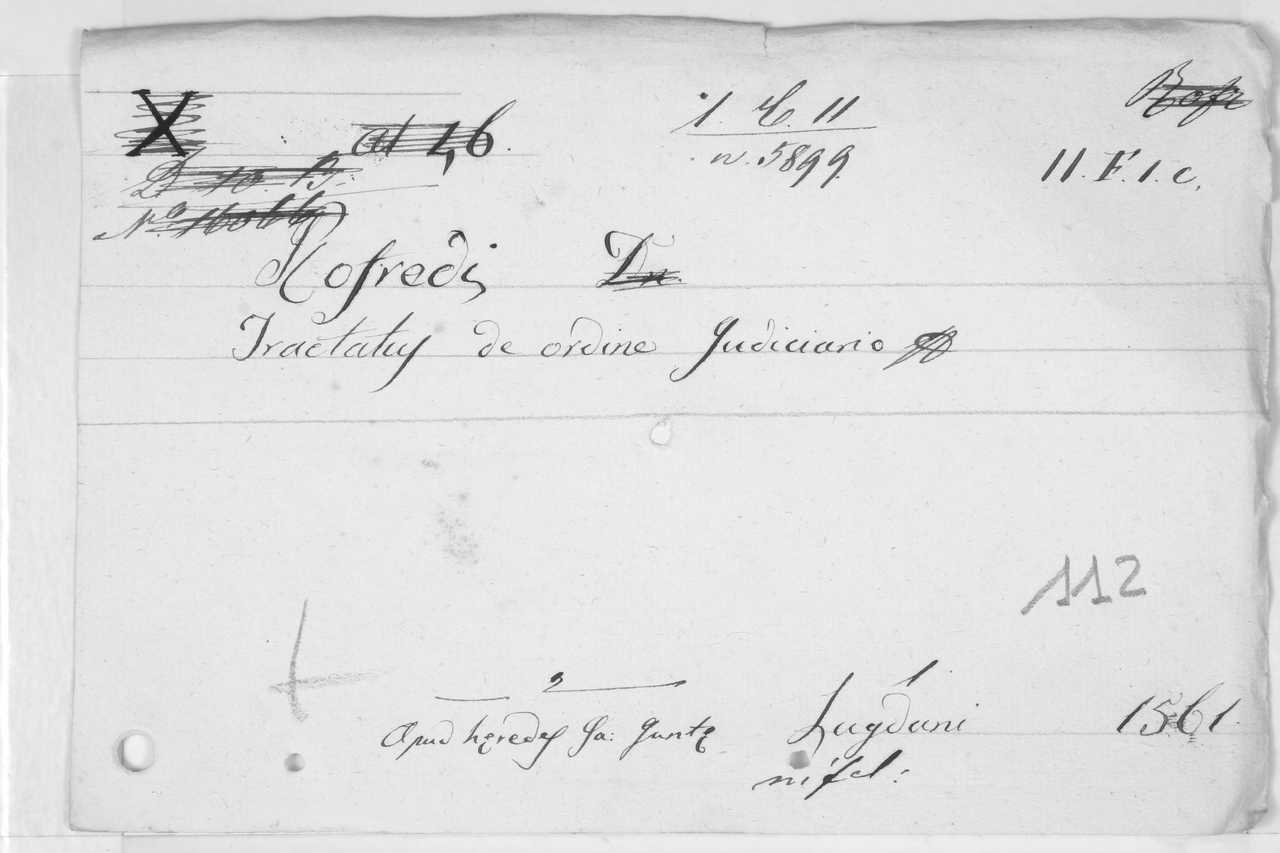 X at 46.
1. C. 11
n. 5899
11. F. 1. c.
Rofredi Dn.
Tractatus de ordine Judiciario
112
2 1
Apud hęredes Ja: Juntę Lugduni 1561.